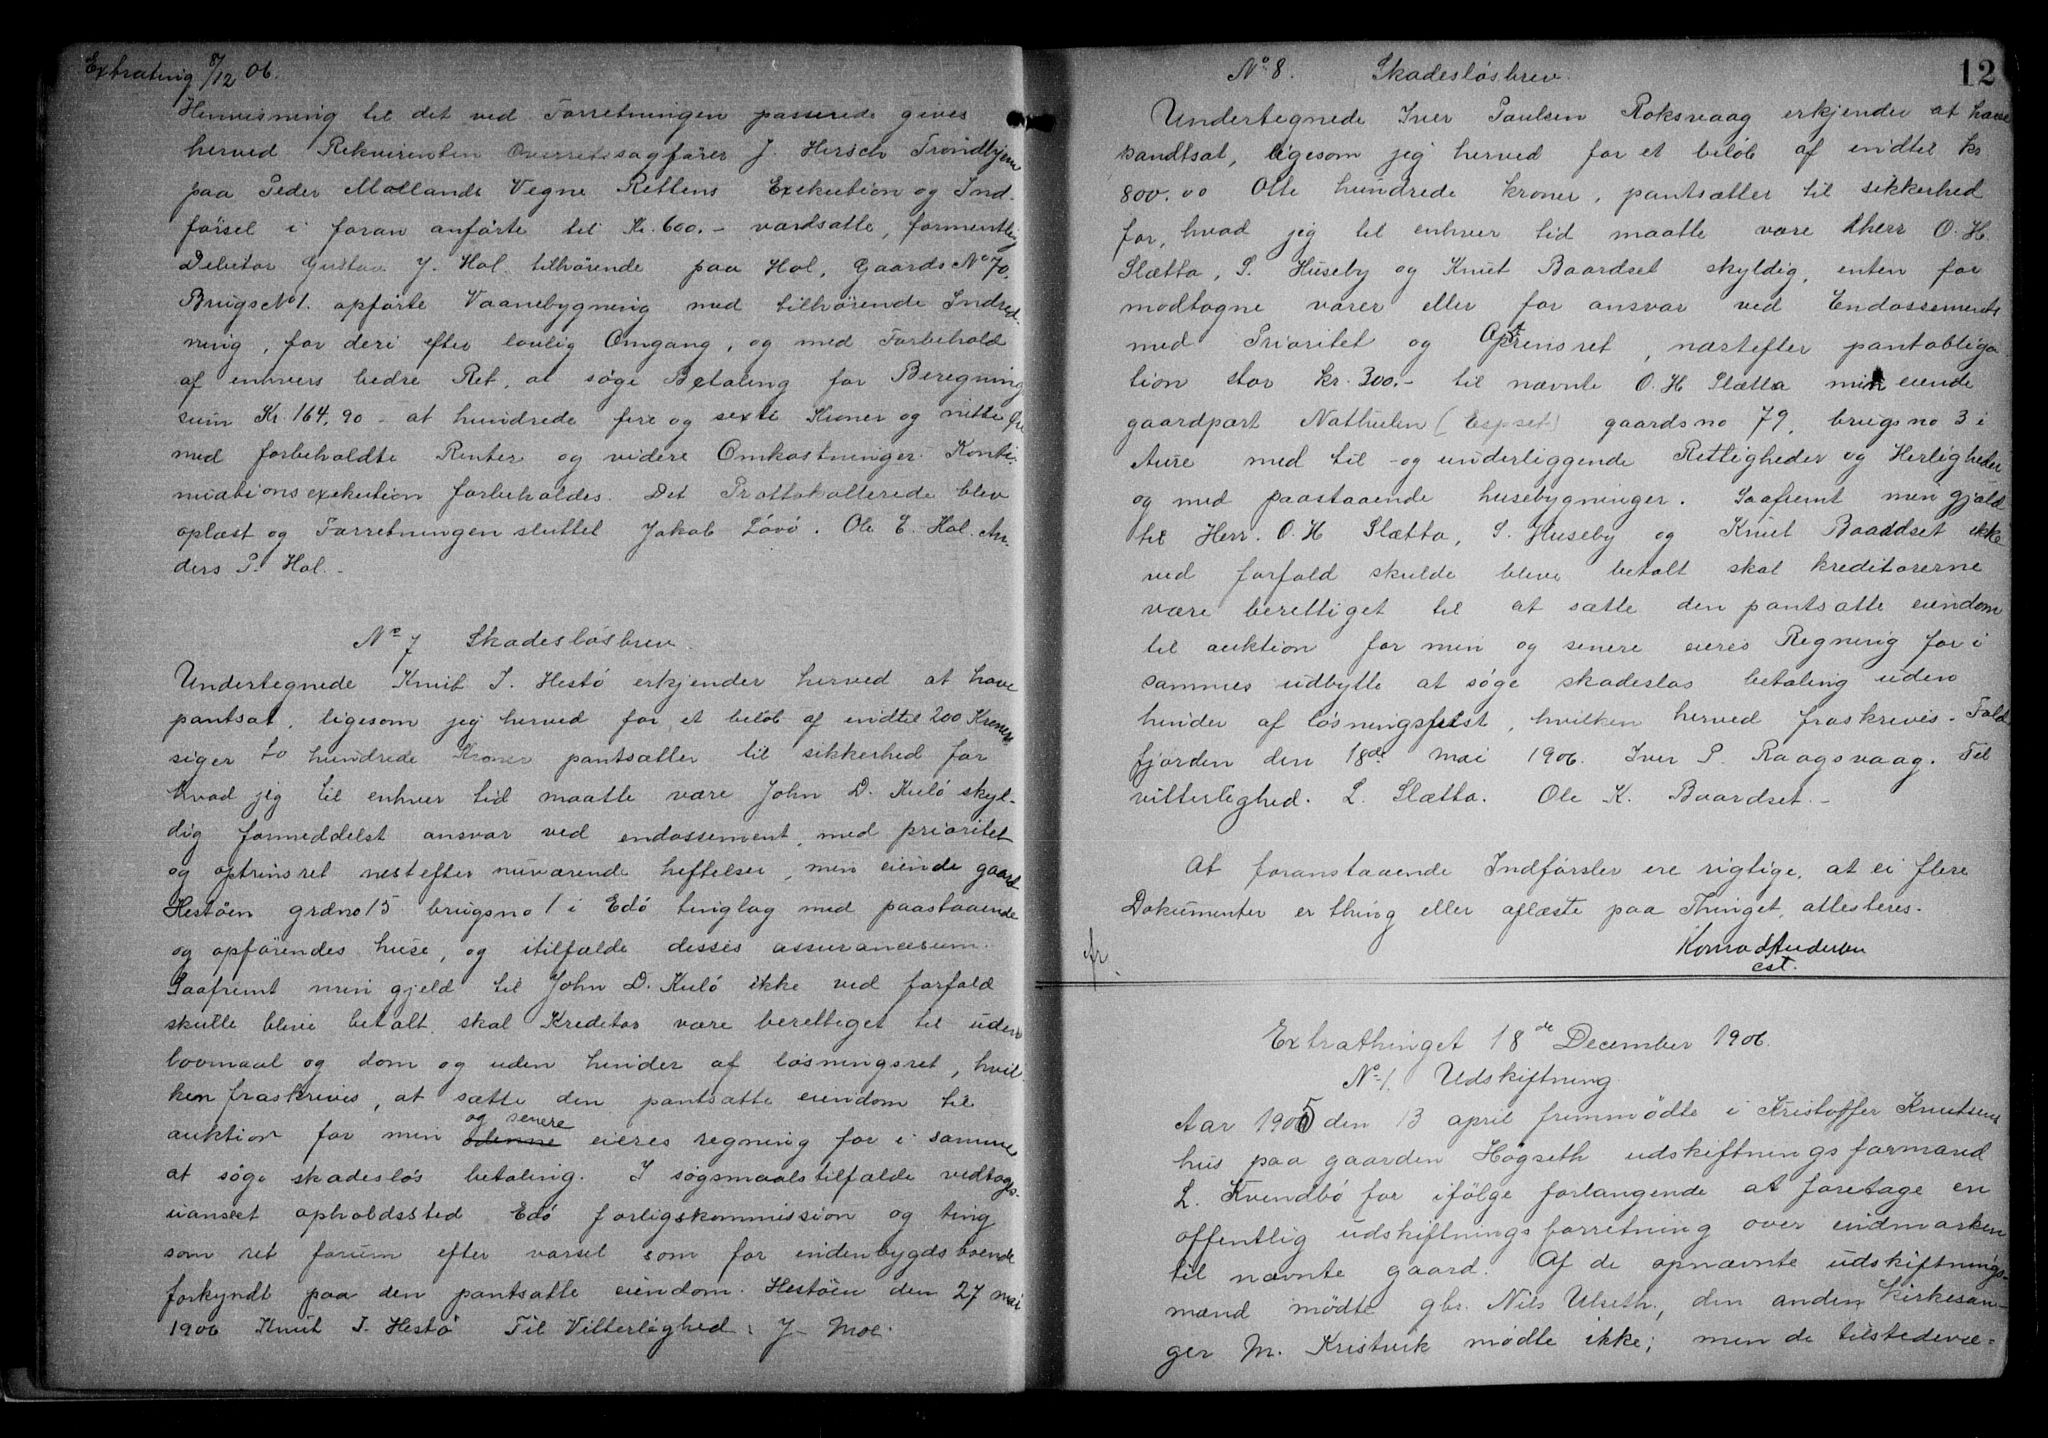 Extrating 8/12 06.
Henvisning til det ved Forretningen passerede gives
herved Rekvirenten Overretssagfører J. Hersch Trondhjem
paa Peder Mollands Vegne Rettens Exekution og Ind-
førsel i foran anførte til Kr. 600.- værdsatte, formentlig
Debitor Gustav J. Hol tilhørende paa Hol, Gaards No 70
Brugs No 1. opførte Vaanebygning med tilhørende Indred-
ning, for deri efter lovlig Omgang, og med Forbehold
af enhvers bedre Ret, at søge Betaling for Beregning
sum Kr. 164,90 - at hundrede fire og sexti Kroner og nitti
med forbeholdte Renter og videre Omkostninger. Konti-
nuationsexekution forbeholdes. Det Prottokollerede blev
oplæst og Forretningen sluttet Jakob Løvø. Ole E. Hol. An-
ders P. Hol.-
No 7 Skadesløsbrev.
Undertegnede Knut I. Hestø erkjender herved at have
pantsat, ligesom jeg herved for et beløb af indtil 200 Kroner
siger to hundrede Kroner pantsætter til sikkerhed for
hvad jeg til enhver tid maatte være John D. Kulø skyl-
dig formeddelst ansvar ved endossement, med prioritet
og optrinsret nestefter nuværende heftelser, min eiende gaard
Hestøen grdno 15 brugsno 1 i Edø tinglag med paastaaende
og opførendes huse, og itilfælde disses assurancesum.
Saafremt min gjeld til John D. Kulø ikke ved forfald
skulle blive betalt, skal Kreditor være berettiget til uden
lovmaal og dom og uden hinder af løsningsret, hvil-
ken fraskrives, at sætte den pantsatte eiendom til
auktion for min og senere eieres regning for i samme
at søge skadesløs betaling. I søgsmaalstilfælde vedtages
uanseet opholdssted Edø forligskommission og ting
som ret forum efter varsel som for indenbygdsboende
forkyndt paa den pantsatte eiendom. Hestøen den 27 mai
1906 Knut I. Hestø Til Vitterlighed: J. Moe.
No 8. Skadesløsbrev. 12
Undertegnede Iver Paulsen Roksvaag erkjender at have
pandtsat, ligesom jeg herved for et beløb af indtil kr
800.00 Otte hundrede kroner, pantsætter til sikkerhed
for, hvad jeg til enhver tid maatte være herr O. H.
Slætta, S. Huseby og Knut Baardset skyldig, enten for
modtagne varer eller for ansvar ved Endossements
med Prioritet og Optrinsret, næstefter pantobliga
tion stor kr. 300.- til nævnte O. H. Slætta min eiende
gaardpart Nathulen (Espset) gaardsno 79, brugsno 3 i
Aure med til- og underliggende Rettigheder og Herligheder
og med paastaaende husebygninger. Saafremt min gjæld
til Herr. O. H. Slætta, S. Huseby og Knut Baardset ikke
ved forfald skulde blive betalt skal kreditorerne
være berettiget til at sætte den pantsatte eiendom
til auktion for min og senere eieres Regning for i
sammes udbytte at søge skadesløs betaling uden
hinder af løsningsfrist, hvilken herved fraskrives. Fold
fjorden den 18de mai 1906. Iver P. Raagsvaag. Til
vitterlighed. L. Slætta. Ole K. Baardset.-
At foranstaaende Indførsler ere rigtige, at ei flere
Dokumenter er thing eller aflæste paa Thinget, attesteres.
Konrad Andersen
cst.
Extrathinget 18de December 1906.
No 1. Udskiftning
Aar 1905 den 13 april fremmødte i Kristoffer Knutsens
hus paa gaarden Høgseth udskiftningsformand
L. Kvendbø for ifølge forlangende at foretage en
offentlig udskiftningsforretning over indmarken
til nævnte gaard. Af de opnævnte udskiftnings-
mænd mødte gbr. Nils Ulseth, den anden Kirkesan-
ger M. Kristvik mødte ikke; men de tilstedevæ-